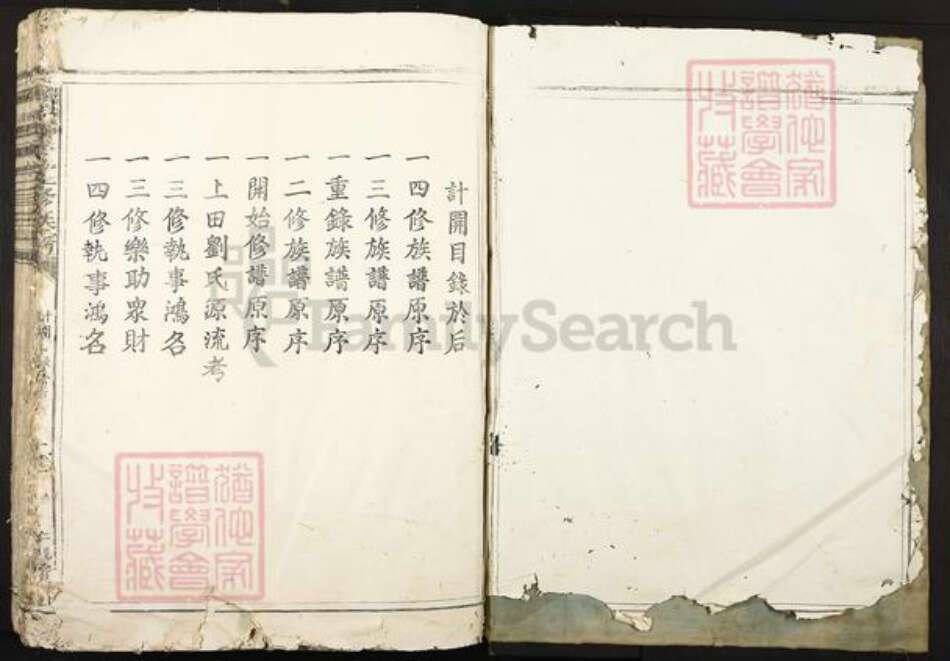 計開目錄於后
一四修族譜原序
一三修族譜原序
一重錄族譜原序
一二修族譜原序
一開始修譜原序
一上田劉氏源流考
一三修執事鴻名
一三修樂助眾財
一四修執事鴻名
FamilySearch
譜學會
收藏
譜學會
收藏